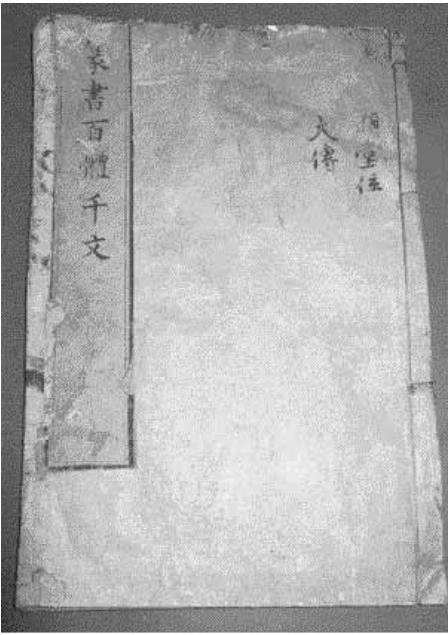 篆書百體千文
堂住
大傳